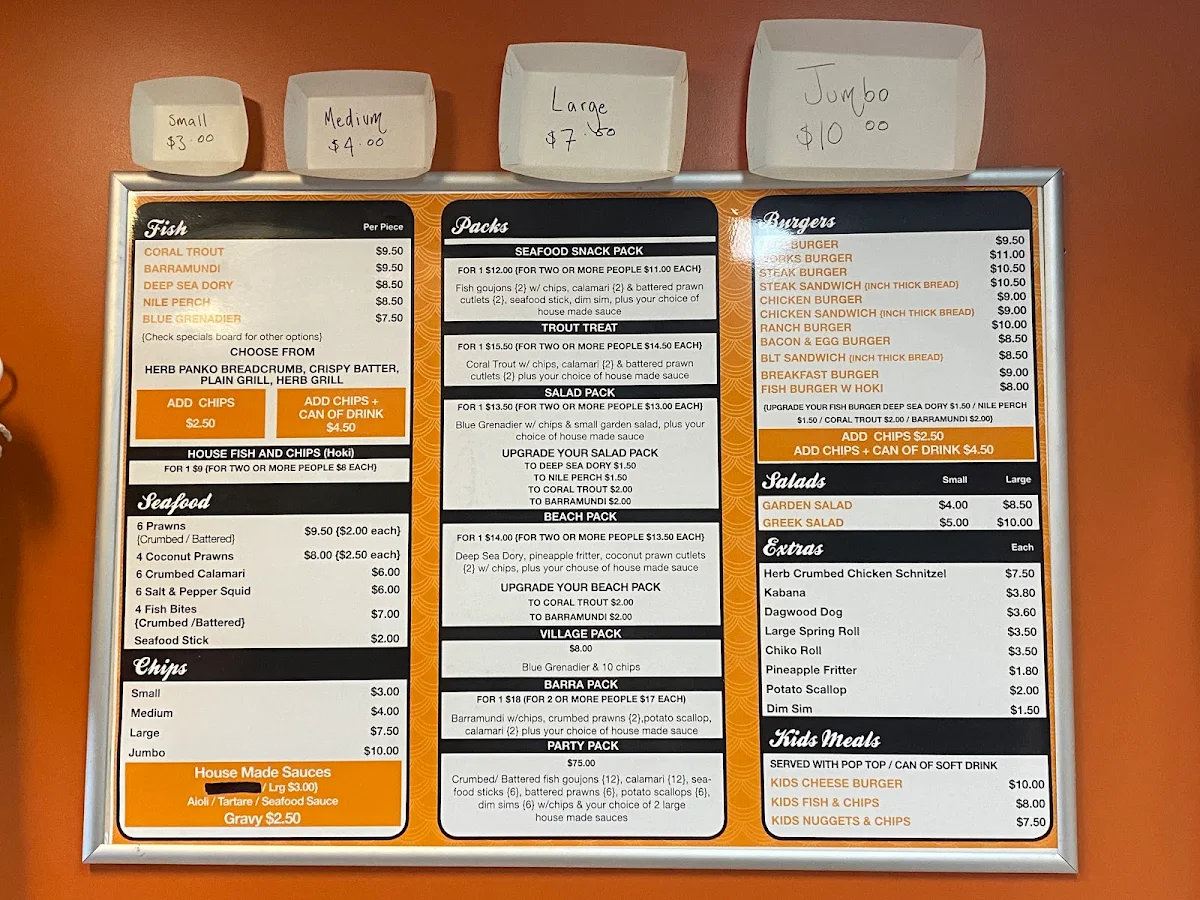 Small
$3.00
Medium
$4.00
Large
$7.50
Jumbo
$10 00
Fish Per Piece
CORAL TROUT $9.50
BARRAMUNDI $9.50
DEEP SEA DORY $8.50
NILE PERCH $8.50
BLUE GRENADIER $7.50
{Check specials board for other options}
CHOOSE FROM
HERB PANKO BREADCRUMB, CRISPY BATTER,
PLAIN GRILL, HERB GRILL
ADD CHIPS
$2.50
ADD CHIPS +
CAN OF DRINK
$4.50
HOUSE FISH AND CHIPS (Hoki)
FOR 1 $9 {FOR TWO OR MORE PEOPLE $8 EACH}
Seafood
6 Prawns $9.50 {$2.00 each}
{Crumbed / Battered}
4 Coconut Prawns $8.00 {$2.50 each}
6 Crumbed Calamari $6.00
6 Salt & Pepper Squid $6.00
4 Fish Bites $7.00
{Crumbed /Battered}
Seafood Stick $2.00
Chips
Small $3.00
Medium $4.00
Large $7.50
Jumbo $10.00
House Made Sauces
/ Lrg $3.00}
Aioli / Tartare / Seafood Sauce
Gravy $2.50
Packs
SEAFOOD SNACK PACK
FOR 1 $12.00 {FOR TWO OR MORE PEOPLE $11.00 EACH}
Fish goujons {2} w/ chips, calamari {2} & battered prawn
cutlets {2}, seafood stick, dim sim, plus your choice of
house made sauce
TROUT TREAT
FOR 1 $15.50 {FOR TWO OR MORE PEOPLE $14.50 EACH}
Coral Trout w/ chips, calamari {2} & battered prawn
cutlets {2} plus your choice of house made sauce
SALAD PACK
FOR 1 $13.50 {FOR TWO OR MORE PEOPLE $13.00 EACH}
Blue Grenadier w/ chips & small garden salad, plus your
choice of house made sauce
UPGRADE YOUR SALAD PACK
TO DEEP SEA DORY $1.50
TO NILE PERCH $1.50
TO CORAL TROUT $2.00
TO BARRAMUNDI $2.00
BEACH PACK
FOR 1 $14.00 {FOR TWO OR MORE PEOPLE $13.50 EACH}
Deep Sea Dory, pineapple fritter, coconut prawn cutlets
{2} w/ chips, plus your chouse of house made sauce
UPGRADE YOUR BEACH PACK
TO CORAL TROUT $2.00
TO BARRAMUNDI $2.00
VILLAGE PACK
$8.00
Blue Grenadier & 10 chips
BARRA PACK
FOR 1 $18 {FOR 2 OR MORE PEOPLE $17 EACH}
Barramundi w/chips, crumbed prawns {2},potato scallop,
calamari {2} plus your choice of house made sauce
PARTY PACK
$75.00
Crumbed/ Battered fish goujons {12}, calamari {12}, sea-
food sticks {6}, battered prawns {6}, potato scallops {6},
dim sims {6} w/chips & your choice of 2 large
house made sauces
Burgers
BURGER $9.50
BURGER $11.00
STEAK BURGER $10.50
STEAK SANDWICH {INCH THICK BREAD} $10.50
CHICKEN BURGER $9.00
CHICKEN SANDWICH {INCH THICK BREAD} $9.00
RANCH BURGER $10.00
BACON & EGG BURGER $8.50
BLT SANDWICH {INCH THICK BREAD} $8.50
BREAKFAST BURGER $9.00
FISH BURGER W HOKI $8.00
{UPGRADE YOUR FISH BURGER DEEP SEA DORY $1.50 / NILE PERCH
$1.50 / CORAL TROUT $2.00 / BARRAMUNDI $2.00}
ADD CHIPS $2.50
ADD CHIPS + CAN OF DRINK $4.50
Salads Small Large
GARDEN SALAD $4.00 $8.50
GREEK SALAD $5.00 $10.00
Extras Each
Herb Crumbed Chicken Schnitzel $7.50
Kabana $3.80
Dagwood Dog $3.60
Large Spring Roll $3.50
Chiko Roll $3.50
Pineapple Fritter $1.80
Potato Scallop $2.00
Dim Sim $1.50
Kids Meals
SERVED WITH POP TOP / CAN OF SOFT DRINK
KIDS CHEESE BURGER $10.00
KIDS FISH & CHIPS $8.00
KIDS NUGGETS & CHIPS $7.50